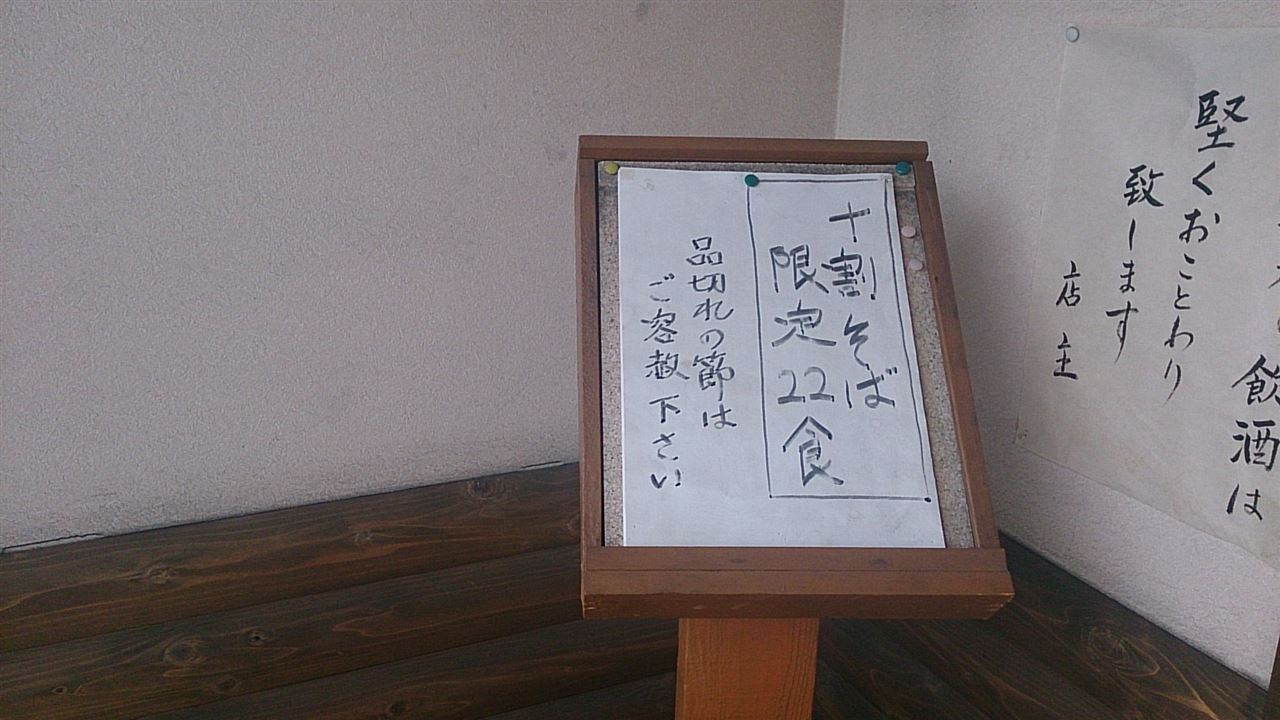 十割そば
限定22食
品切れの節は
ご容赦下さい
飲酒は
堅くおことわり
致します
店主